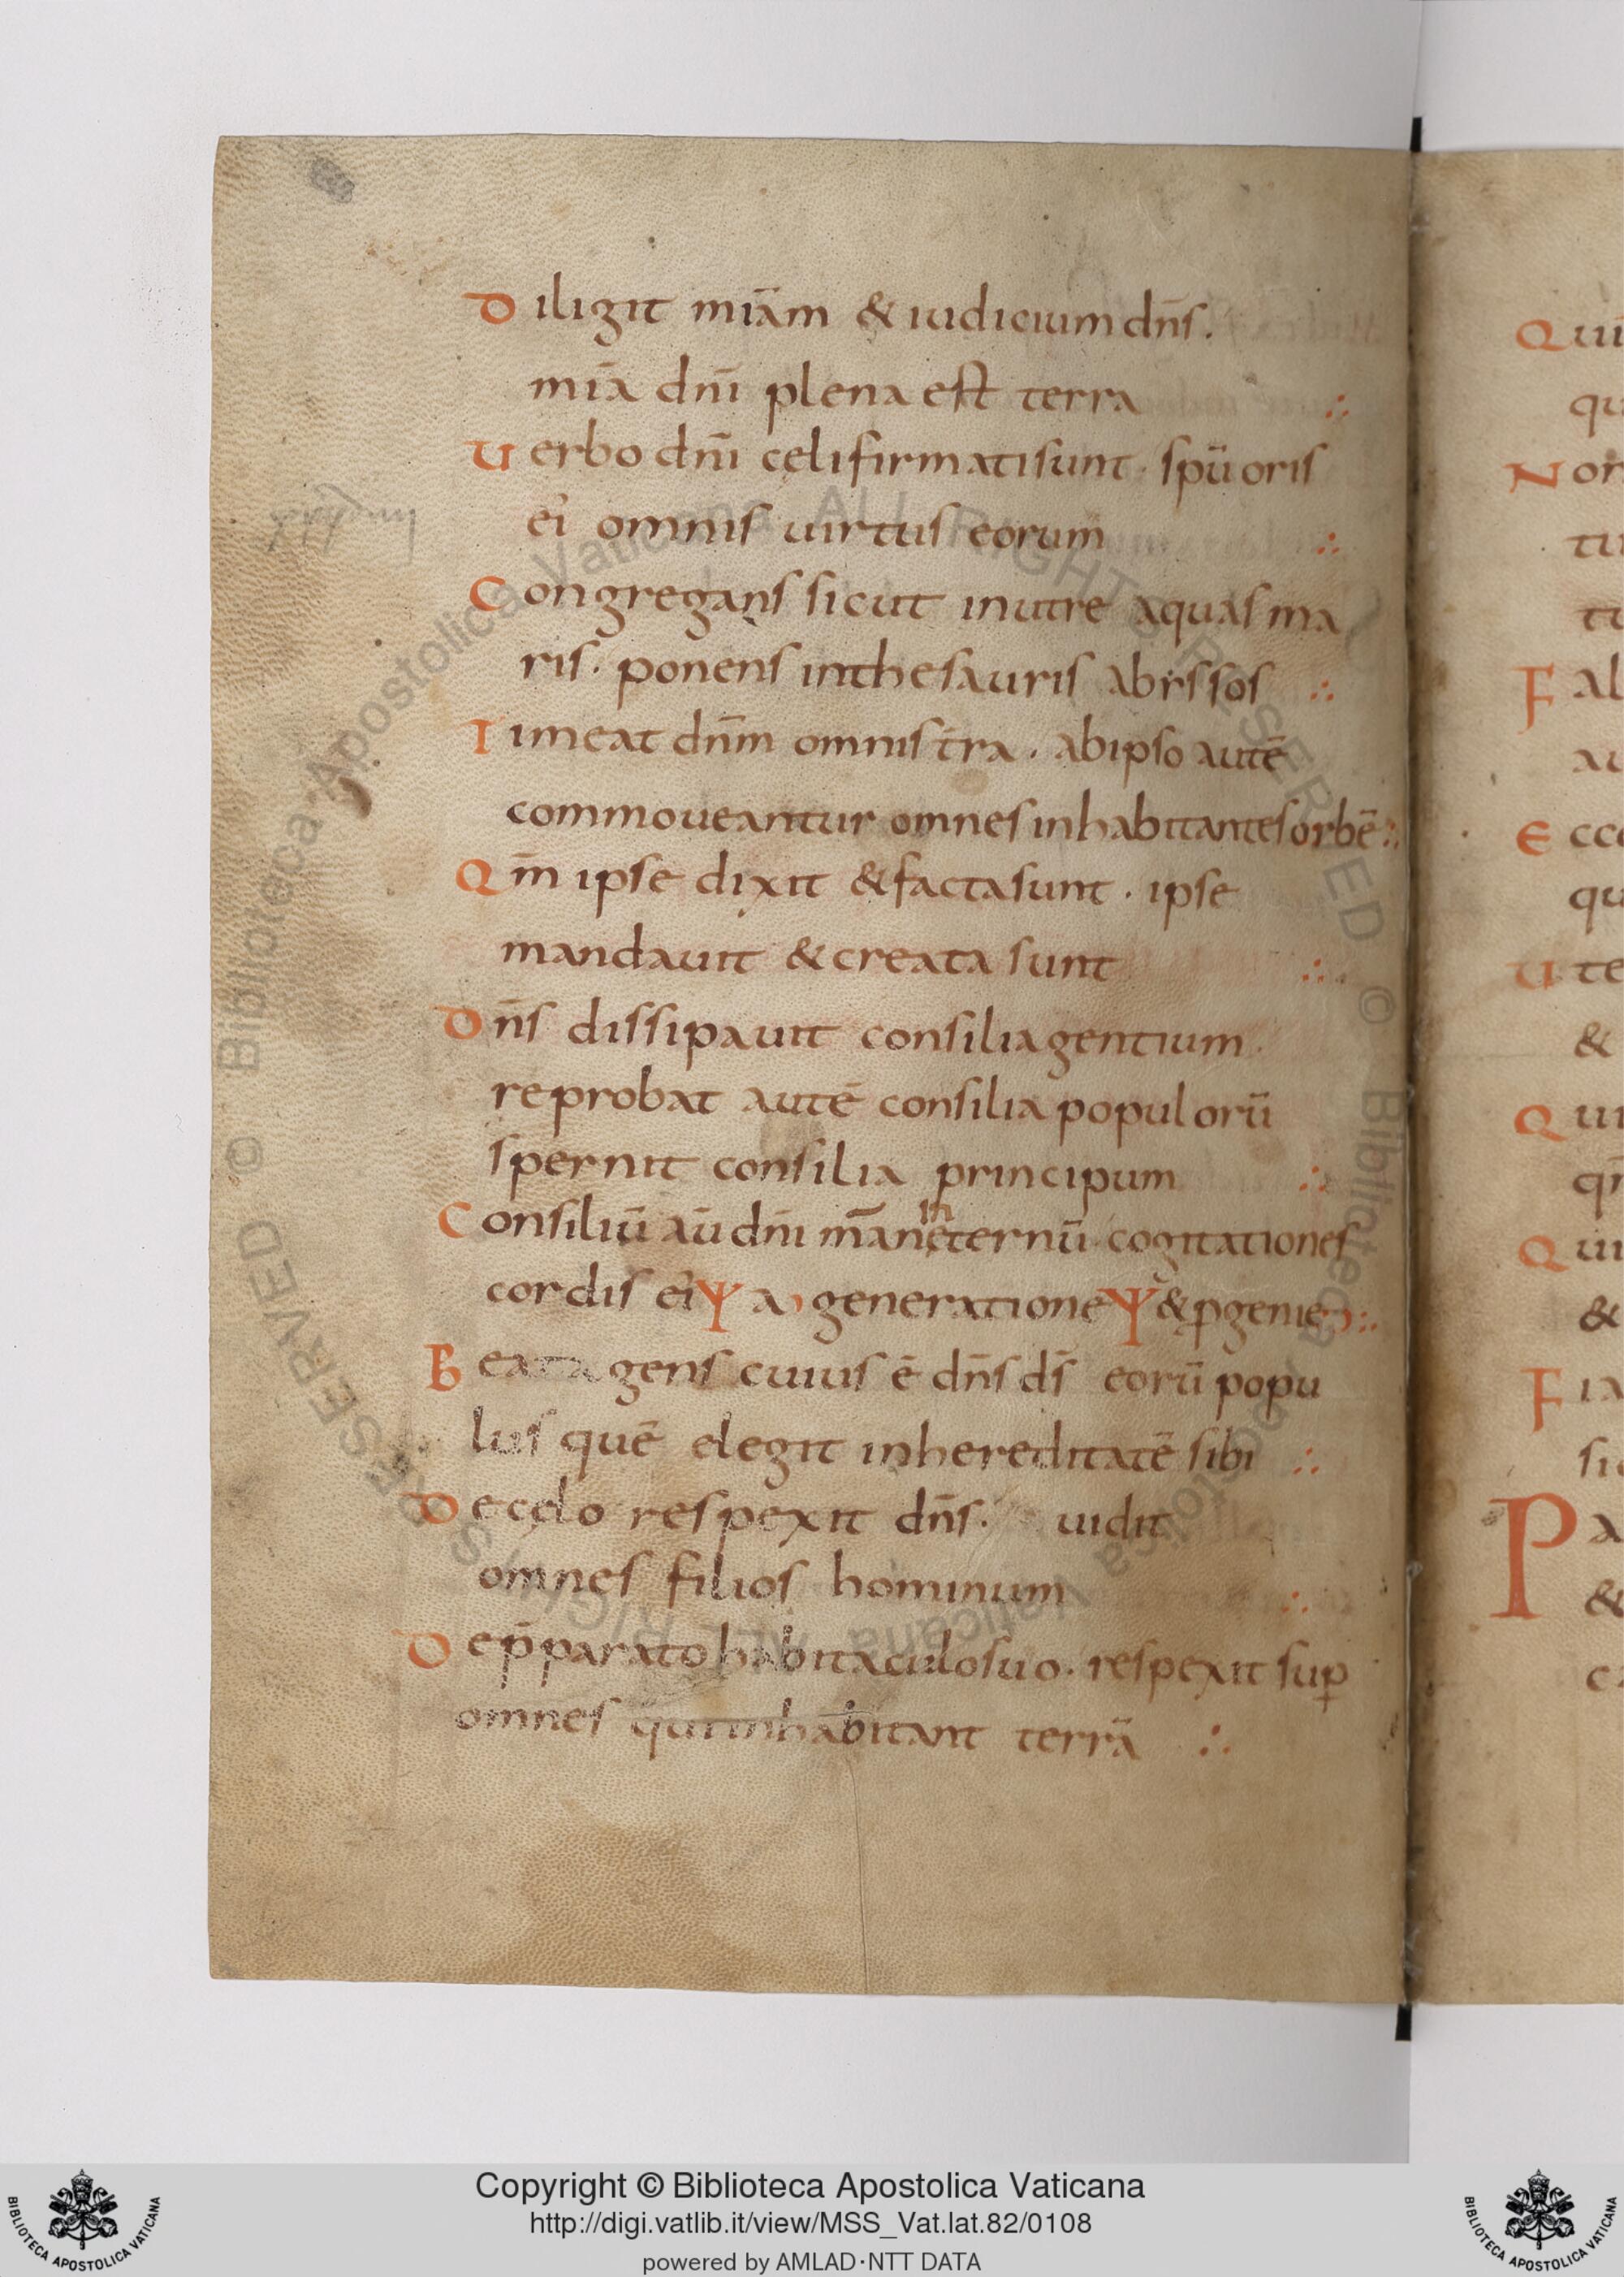 Diligit miām & iudicium dn̄s.
miā dn̄i plena est terra ∴
Uerbo dn̄i cęli firmati sunt. spū oris
eī omnis uirtus eorum ∴
Congregans sicut in utre aquas ma
ris. ponens in thesauris abissos ∴
Timeat dn̄m omnis t̄ra. ab ipso autē
commoueantur omnes inhabitantes orbē ∴
Qm̄ ipse dixit & facta sunt. ipse
mandauit & creata sunt ∴
Dn̄s dissipauit consilia gentium.
reprobat autē consilia populorū
spernit consilia principum ∴
in
Consiliū aū dn̄i man̄ ęternū cogitationes
cordis eī Ψ a generatione Ψ & ꝓgenie ∴
Beata gens cuius ē dn̄s ds̄ eorū popu
lus quē elegit in hereditatē sibi ∴
De cęlo respexit dn̄s. uidit
omnes filios hominum ∴
De p̄parato habitaculo suo. respexit suꝑ
omnes qui inhabitant terrā ∴
Qui
qu
Non
tu
tu
Fal
au
Ecce
qu
Ute
&
Qui
qn
Qui
&
Fia
sic
Pa
&
c
Copyright © Biblioteca Apostolica Vaticana
http://digi.vatlib.it/view/MSS_Vat.lat.82/0108
powered by AMLAD·NTT DATA
BIBLIOTECA APOSTOLICA VATICANA
BIBLIOTECA APOSTOLICA VATICANA
© Biblioteca Apostolica Vaticana ALL RIGHTS RESERVED © Biblioteca Apostolica Vaticana ALL RIGHTS RESERVED